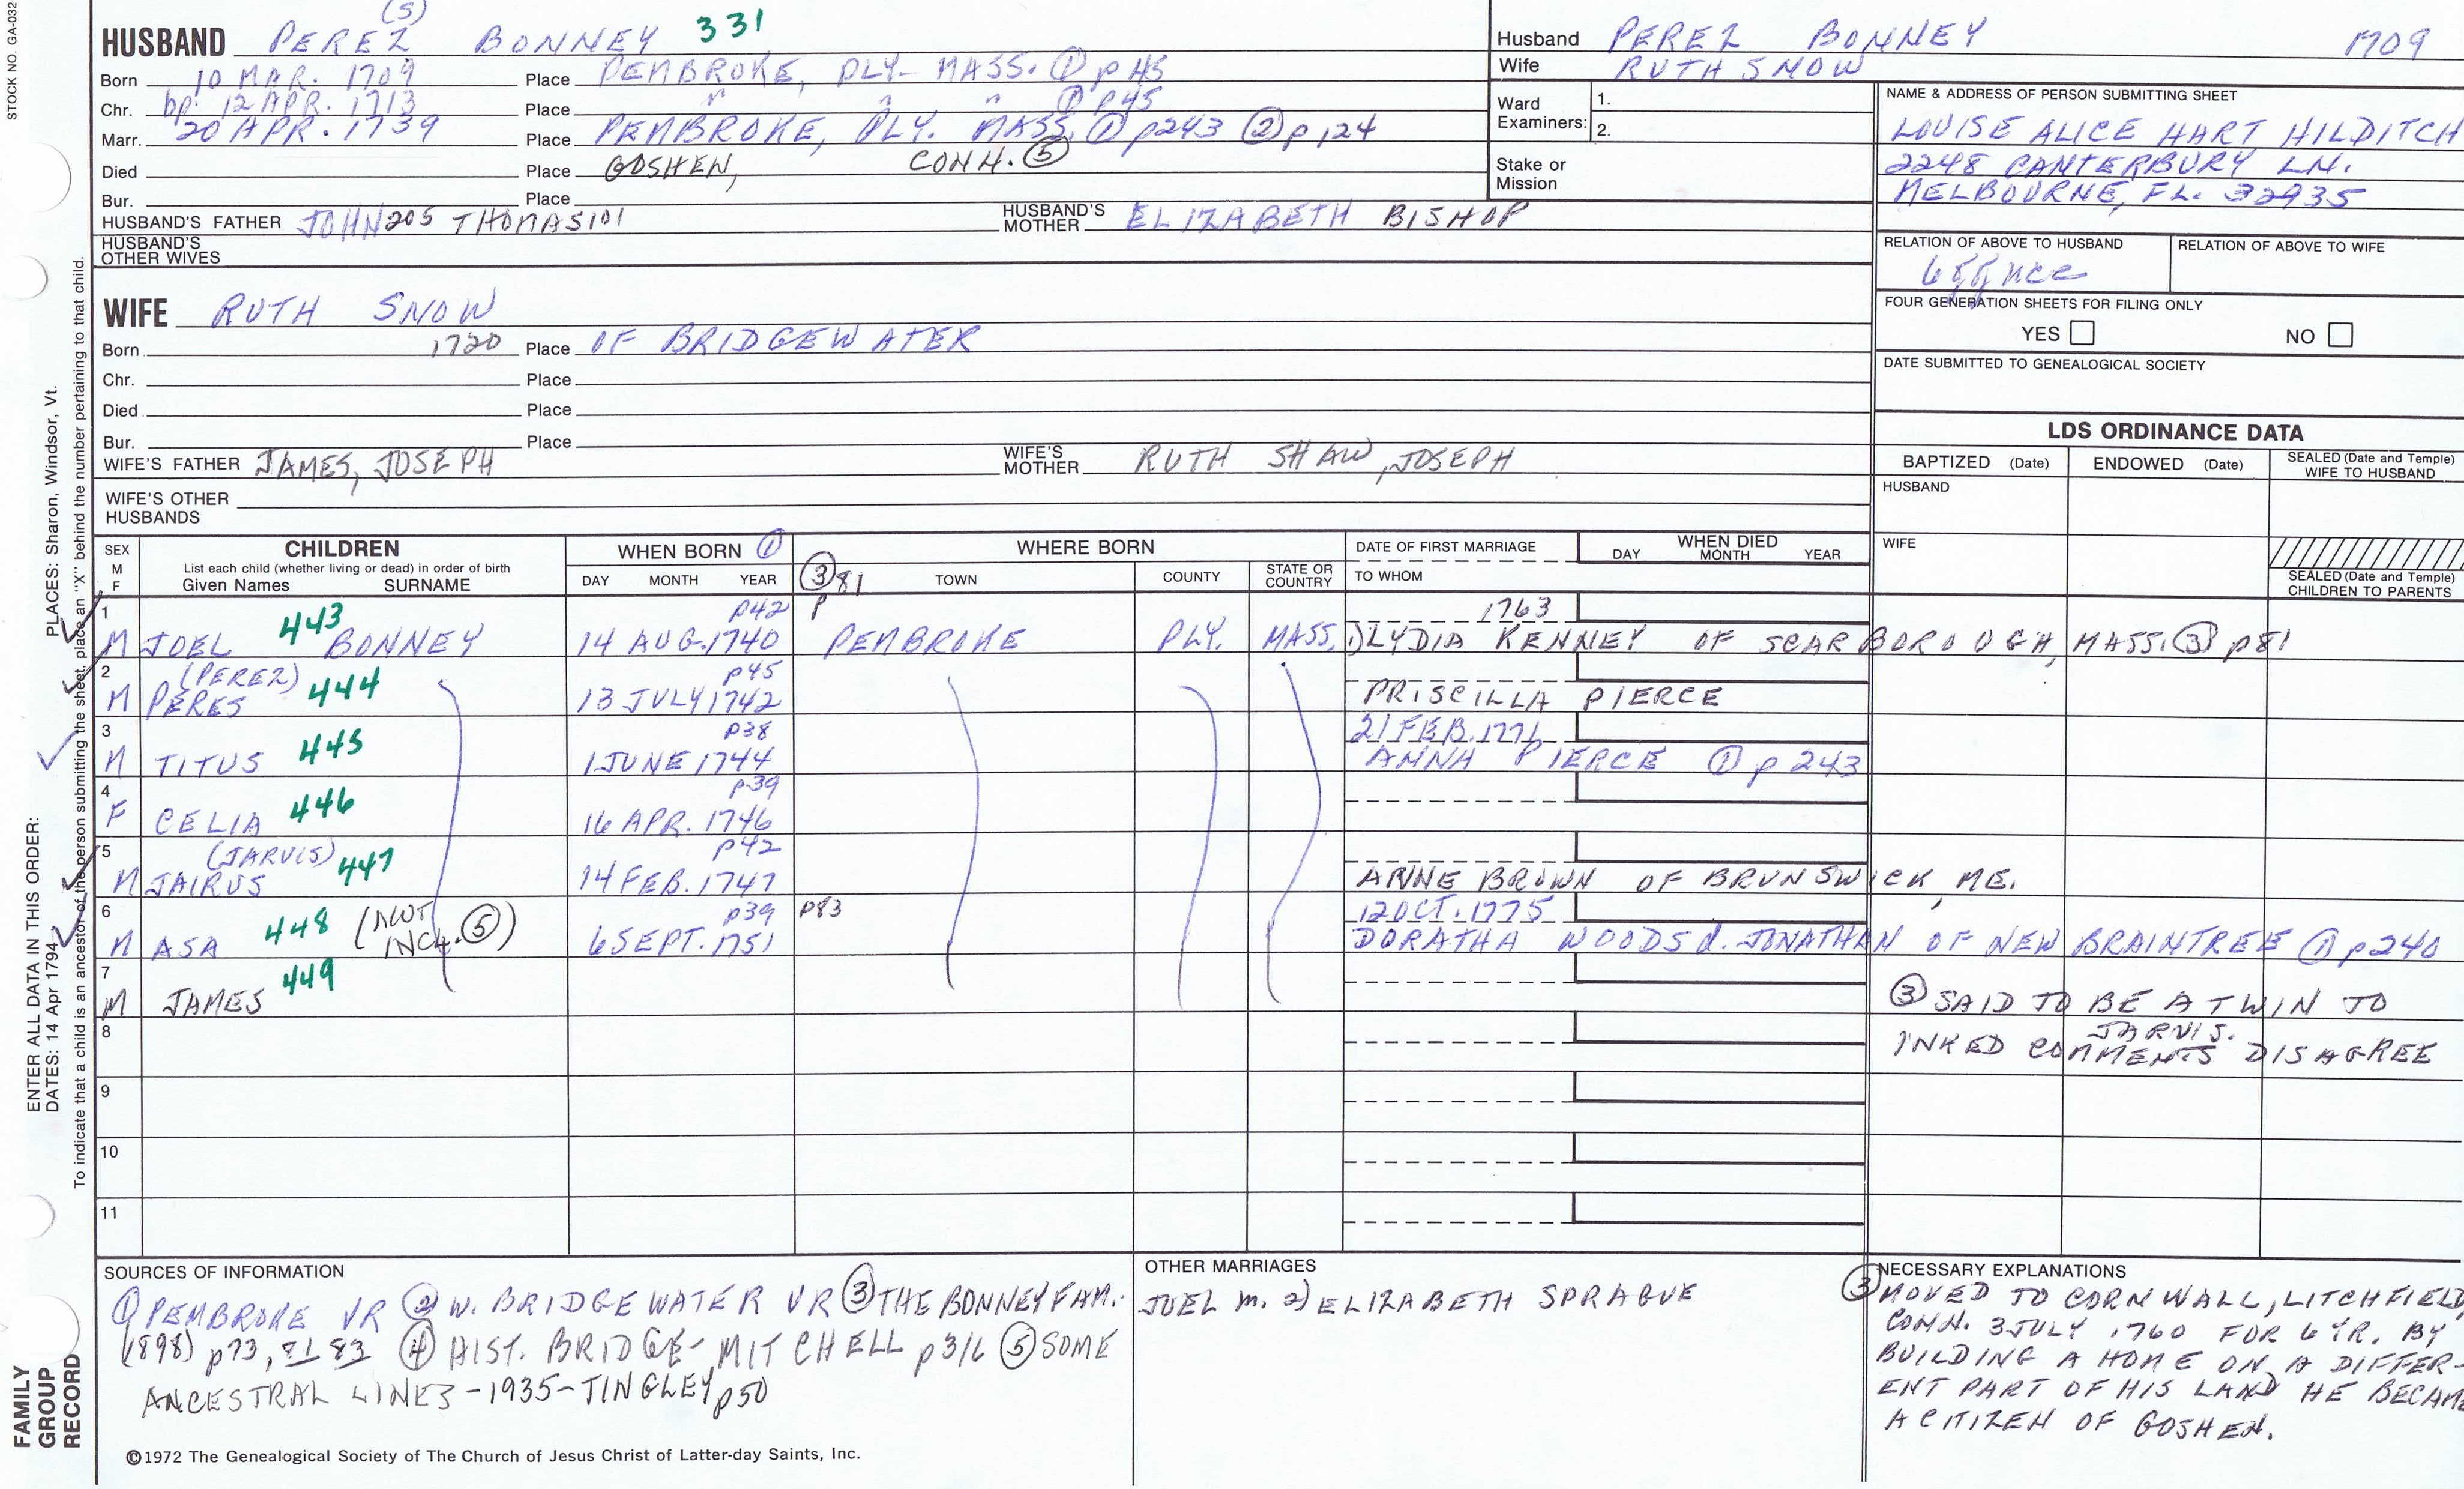 STOCK NO. GA-032
(S)
HUSBAND PEREZ BONNEY 331
Born 10 MAR. 1709 Place PEMBROKE, PLY- MASS. ① p 45
Chr. bp. 12 APR. 1713 Place " " " ① p 45
Marr. 20 APR. 1739 Place PEMBROKE, PLY. MASS. ① p 243 ② p 124
Died Place GOSHEN, CONN. ⑤
Bur. Place
HUSBAND'S FATHER JOHN 205 THOMAS 101 HUSBAND'S MOTHER ELIZABETH BISHOP
HUSBAND'S OTHER WIVES
Husband PEREZ BONNEY 1709
Wife RUTH SNOW
Ward Examiners: 1.
2.
Stake or Mission
NAME & ADDRESS OF PERSON SUBMITTING SHEET
LOUISE ALICE HART HILDITCH
2248 CANTERBURY LN.
MELBOURNE, FL. 32935
RELATION OF ABOVE TO HUSBAND RELATION OF ABOVE TO WIFE
FOUR GENERATION SHEETS FOR FILING ONLY
YES NO
DATE SUBMITTED TO GENEALOGICAL SOCIETY
WIFE RUTH SNOW
Born 1720 Place OF BRIDGEWATER
Chr. Place
Died Place
Bur. Place
WIFE'S FATHER JAMES, JOSEPH WIFE'S MOTHER RUTH SHAW, JOSEPH
WIFE'S OTHER HUSBANDS
LDS ORDINANCE DATA
BAPTIZED (Date) ENDOWED (Date) SEALED (Date and Temple) WIFE TO HUSBAND
HUSBAND
WIFE
SEALED (Date and Temple) CHILDREN TO PARENTS
SEX M F CHILDREN List each child (whether living or dead) in order of birth Given Names SURNAME
WHEN BORN ① DAY MONTH YEAR
WHERE BORN ③ p 81 TOWN COUNTY STATE OR COUNTRY
DATE OF FIRST MARRIAGE TO WHOM
WHEN DIED DAY MONTH YEAR
1 p42 1763
M JOEL 443 BONNEY 14 AUG. 1740 PEMBROKE PLY. MASS. 1) LYDIA KENNEY OF SCARBOROUGH, MASS. ③ p 81
2 (PEREZ) p45
M PERES 444 13 JULY 1742 PRISCILLA PIERCE
3 p38 21 FEB. 1771
M TITUS 445 1 JUNE 1744 ANNA PIERCE ① p 243
4 p39
F CELIA 446 16 APR. 1746
5 (JARVIS) p42
M JAIRUS 447 14 FEB. 1747 ANNE BROWN OF BRUNSWICK, ME.
6 p39 p83 12 OCT. 1775
M ASA 448 (NOT INCL. ⑤) 6 SEPT. 1751 DORATHA WOODS d. JONATHAN OF NEW BRAINTREE ① p 240
7
M JAMES 449 ③ SAID TO BE A TWIN TO JARVIS.
INKED COMMENTS DISAGREE
8
9
10
11
SOURCES OF INFORMATION
① PEMBROKE VR ② W. BRIDGEWATER VR ③ THE BONNEY FAM.
(1898) p73, 81 83 ④ HIST. BRIDGE- MITCHELL p316 ⑤ SOME
ANCESTRAL LINES -1935- TINGLEY p50
OTHER MARRIAGES
JOEL m. 2) ELIZABETH SPRAGUE
NECESSARY EXPLANATIONS
③ MOVED TO CORNWALL, LITCHFIELD
CONN. 3 JULY 1760 FOR 6 YR. BY
BUILDING A HOME ON A DIFFER-
ENT PART OF HIS LAND HE BECAME
A CITIZEN OF GOSHEN.
©1972 The Genealogical Society of The Church of Jesus Christ of Latter-day Saints, Inc.
FAMILY GROUP RECORD
ENTER ALL DATA IN THIS ORDER:
DATES: 14 Apr 1794
PLACES: Sharon, Windsor, Vt.
To indicate that a child is an ancestor of the person submitting the sheet, place an "X" behind the number pertaining to that child.